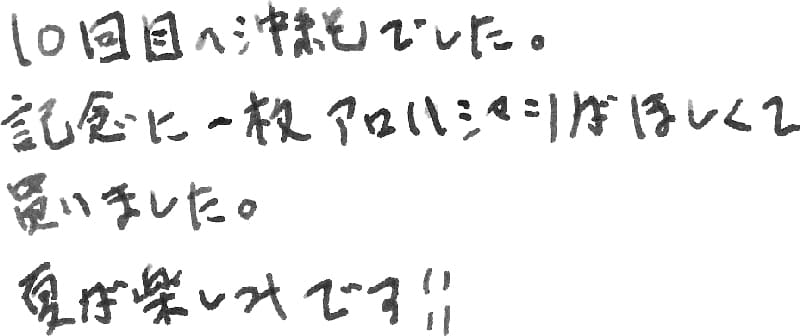 10回目の沖縄でした。
記念に一枚アロハシャツがほしくて
買いました。
夏が楽しみです!!